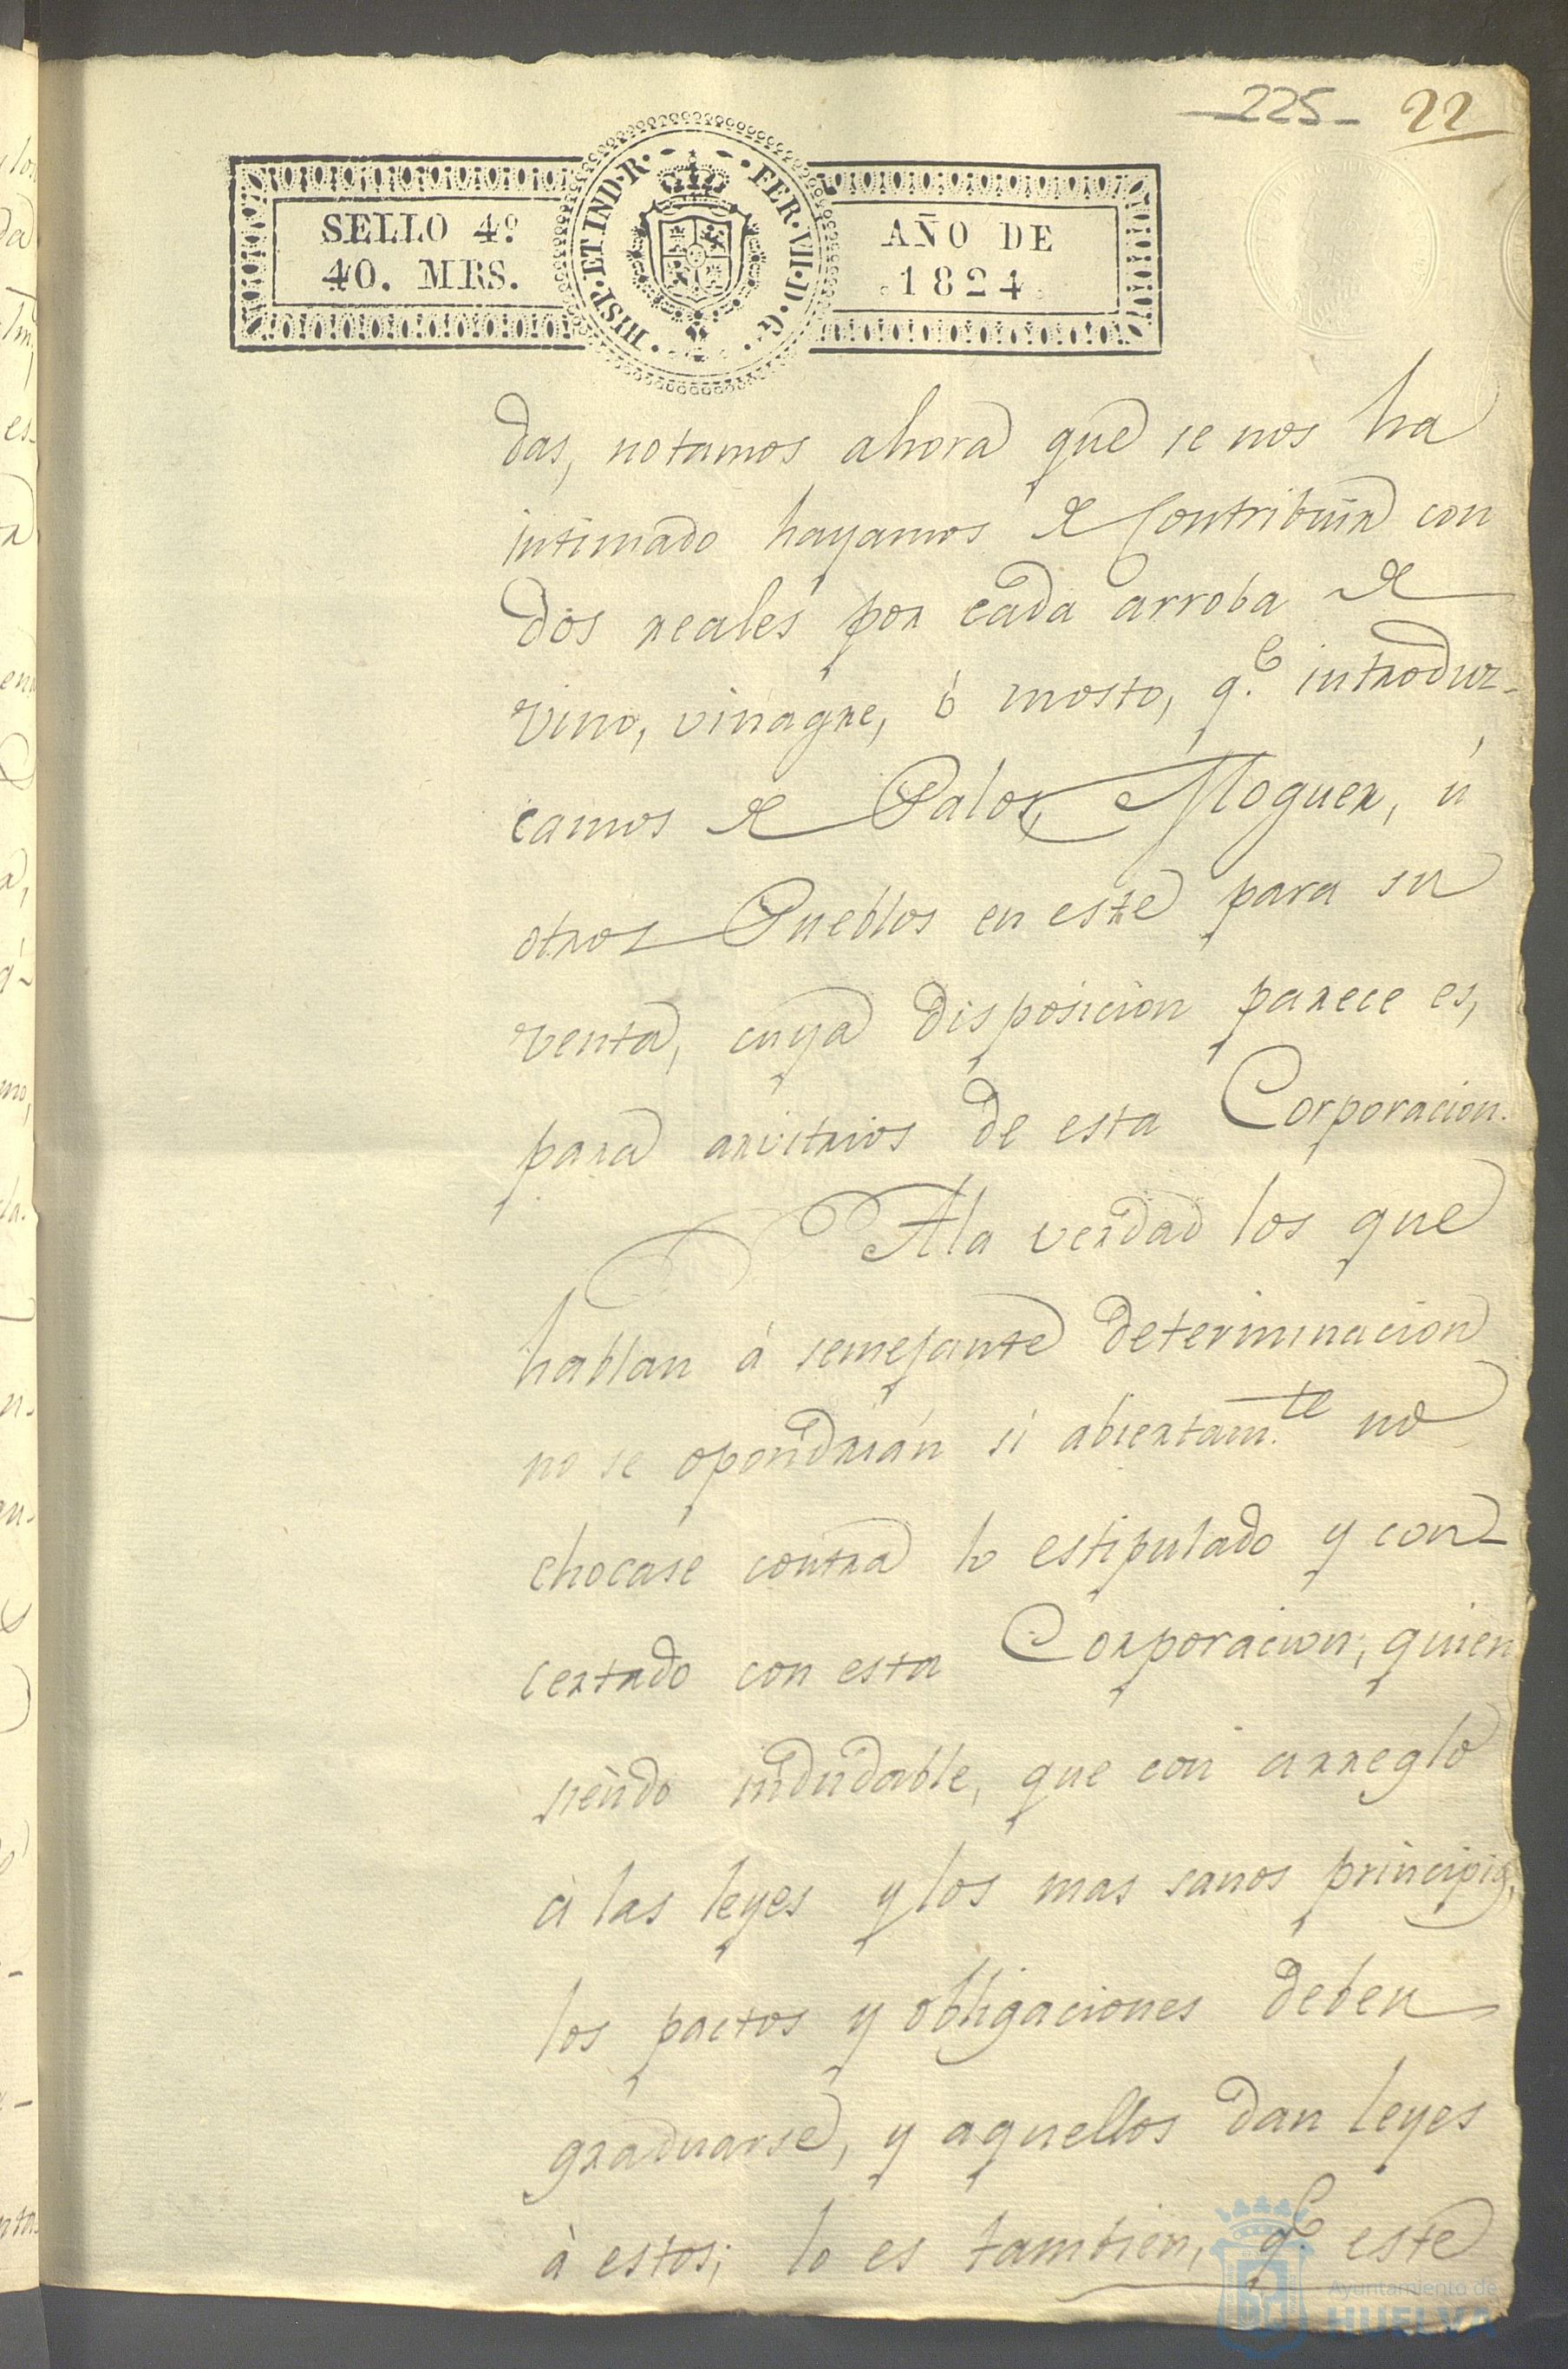 225 22
SELLO 4º
40. MRS.
HISP·ET IND·R· FER·VII·D·G·
AÑO DE
1824
das, notamos ahora que se nos ha
intimado hayamos de Contribuir con
dos reales por cada arroba de
vino, vinagre, ó mosto, q.e introduz-
camos de Palos, Moguer, ú
otros Pueblos en este para su
venta, cuya disposicion parece es,
para arvitrios de esta Corporacion.
Ala verdad los que
hablan á semejante determinacion
no se opondrián si abiertam.te no
chocase contra lo estipulado y con-
certado con esta Corporacion; quien
siendo indudable, que con arreglo
á las leyes y los mas sanos principios,
los pactos y obligaciones deben
graduarse, y aquellos dan leyes
à estos; lo es tambien, q.e este
Ayuntamiento de
HUELVA